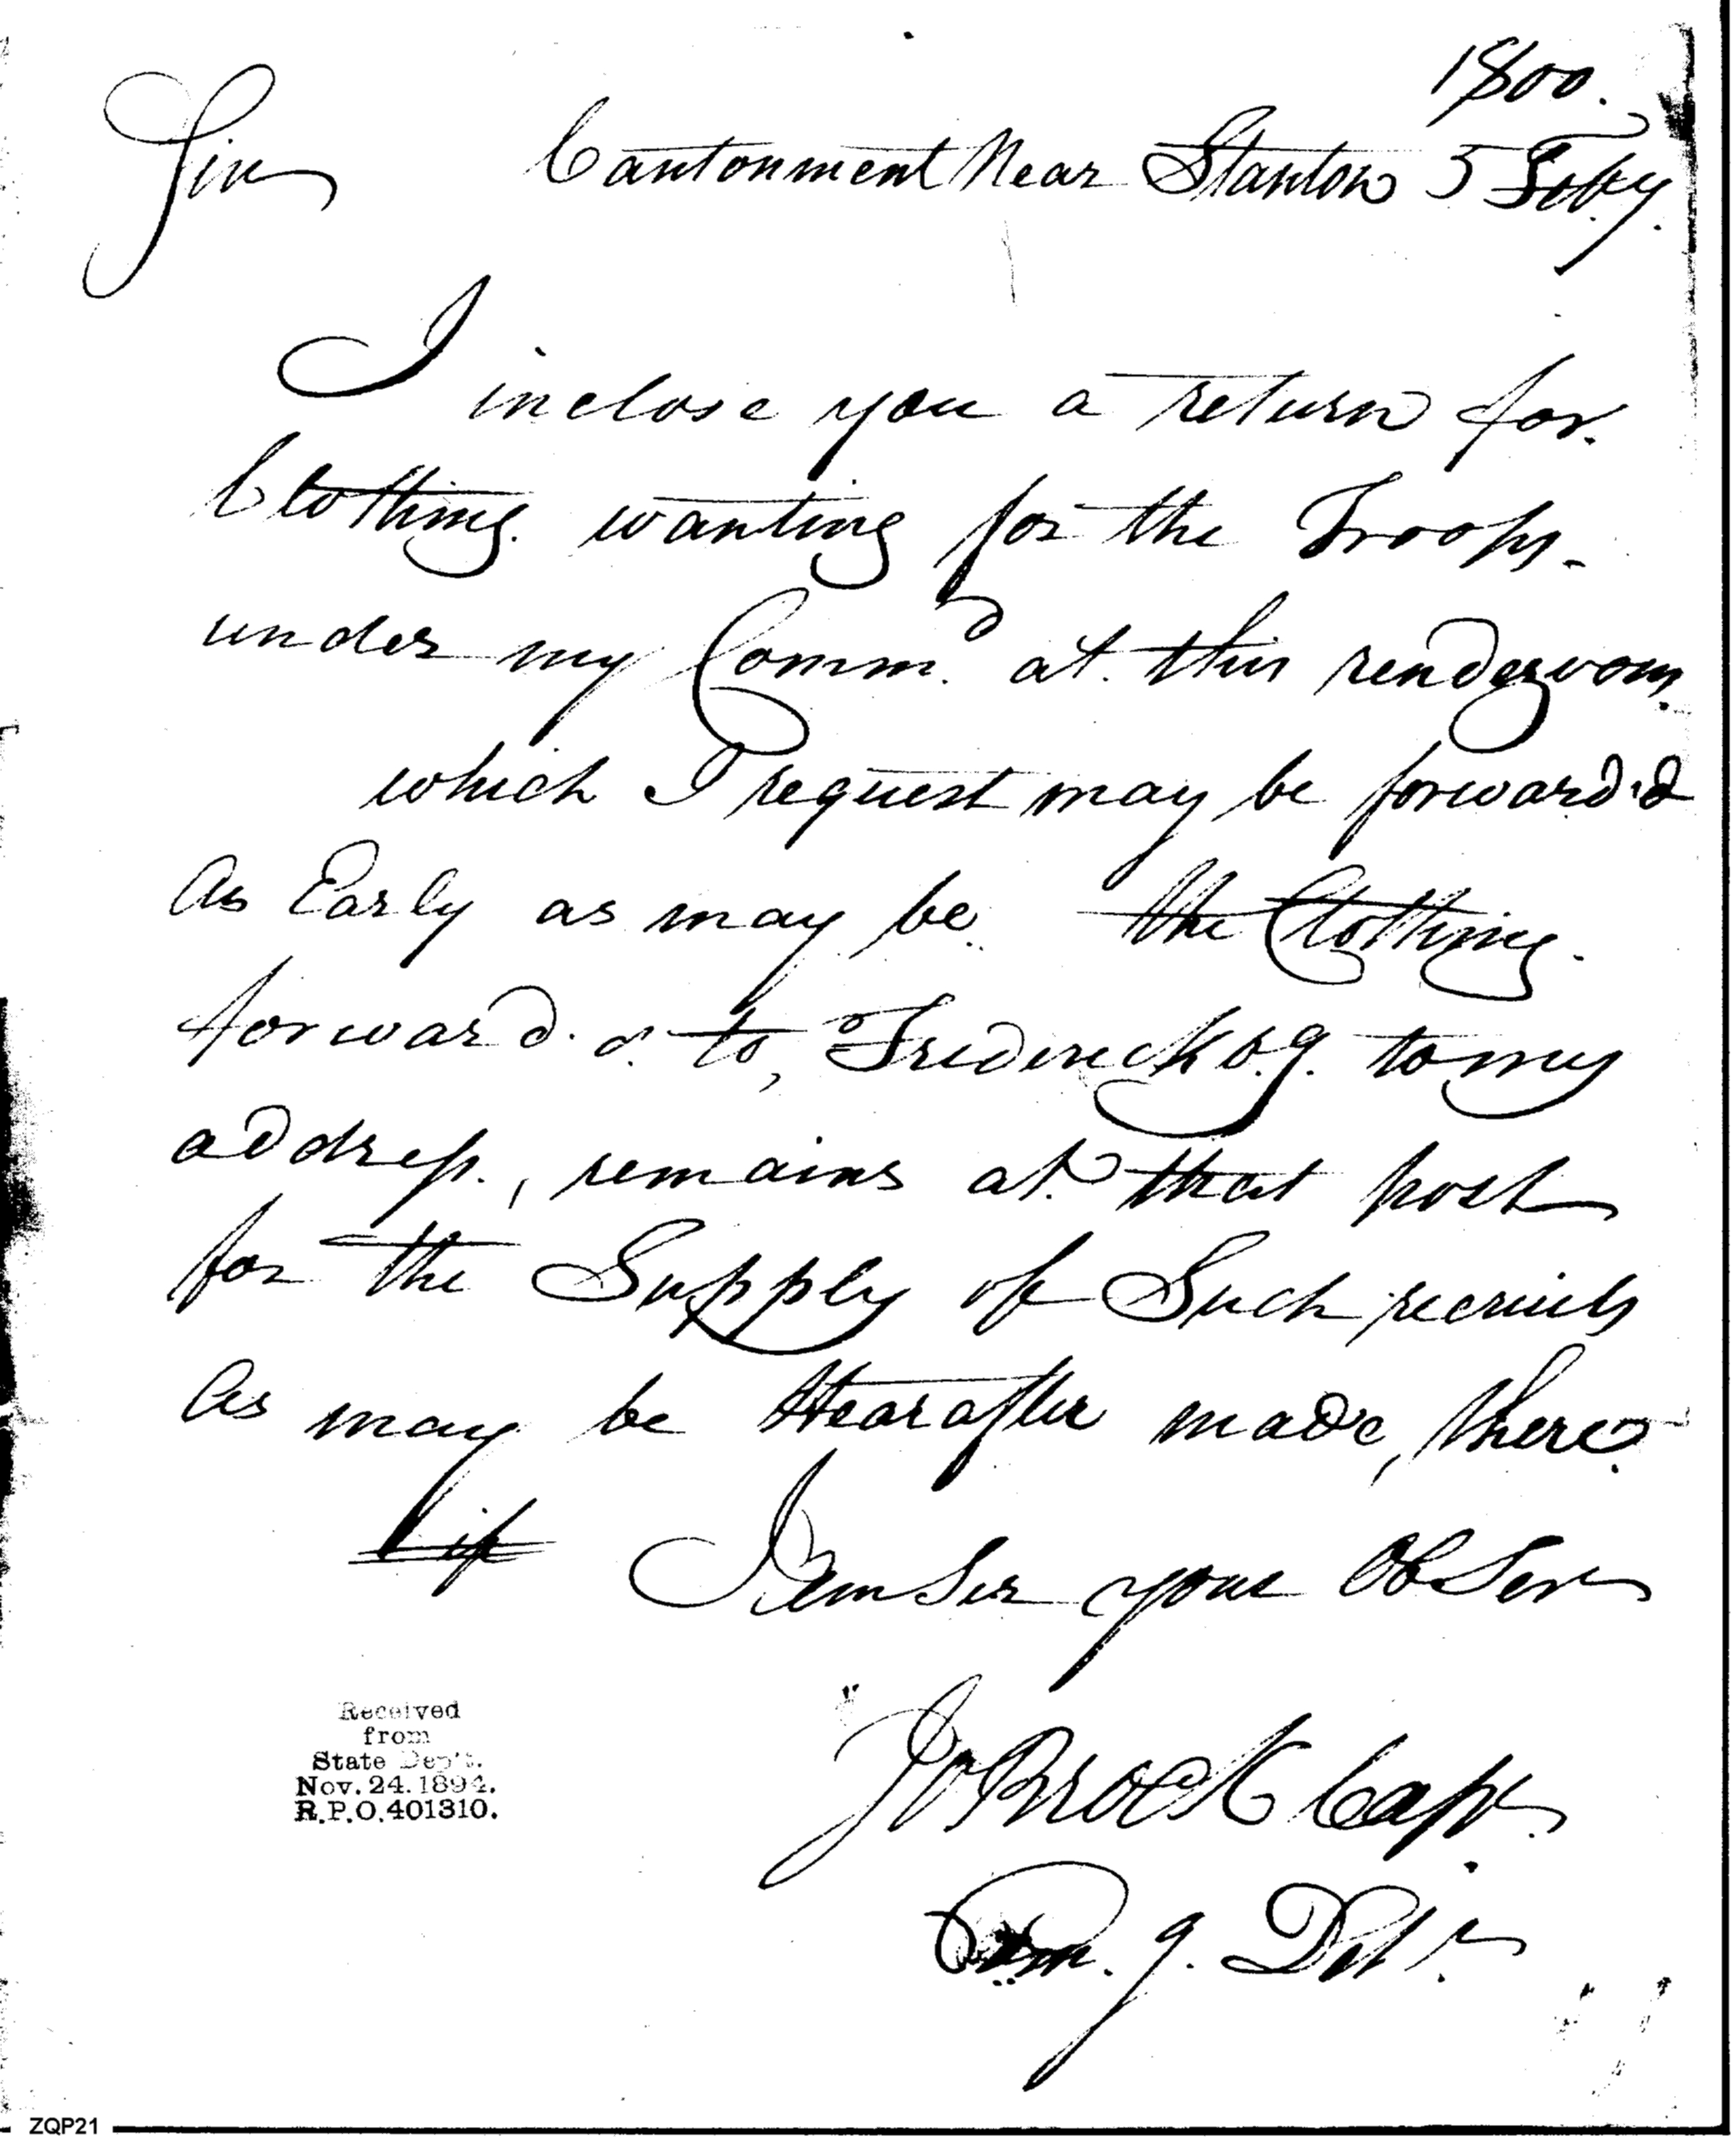 1800.
Sir Cantonment Near Stanton 5 Feby.
I inclose you a return for.
Clothing. wanting for the Troops.
under my Comm.d at this rendezvous,
which I request may be forward'd
As Early as may be. the Clothing.
forward.d to, Frederick b.g. to my
address., remains at that post
for the Supply of Such recruits
As may be Hearafter made, there.
I am Sir your Ob Ser
Jo Brock Capt.
Com.g. Dett.
Received
from
State Dep't.
Nov. 24. 1894.
R.P.O. 401310.
ZQP21